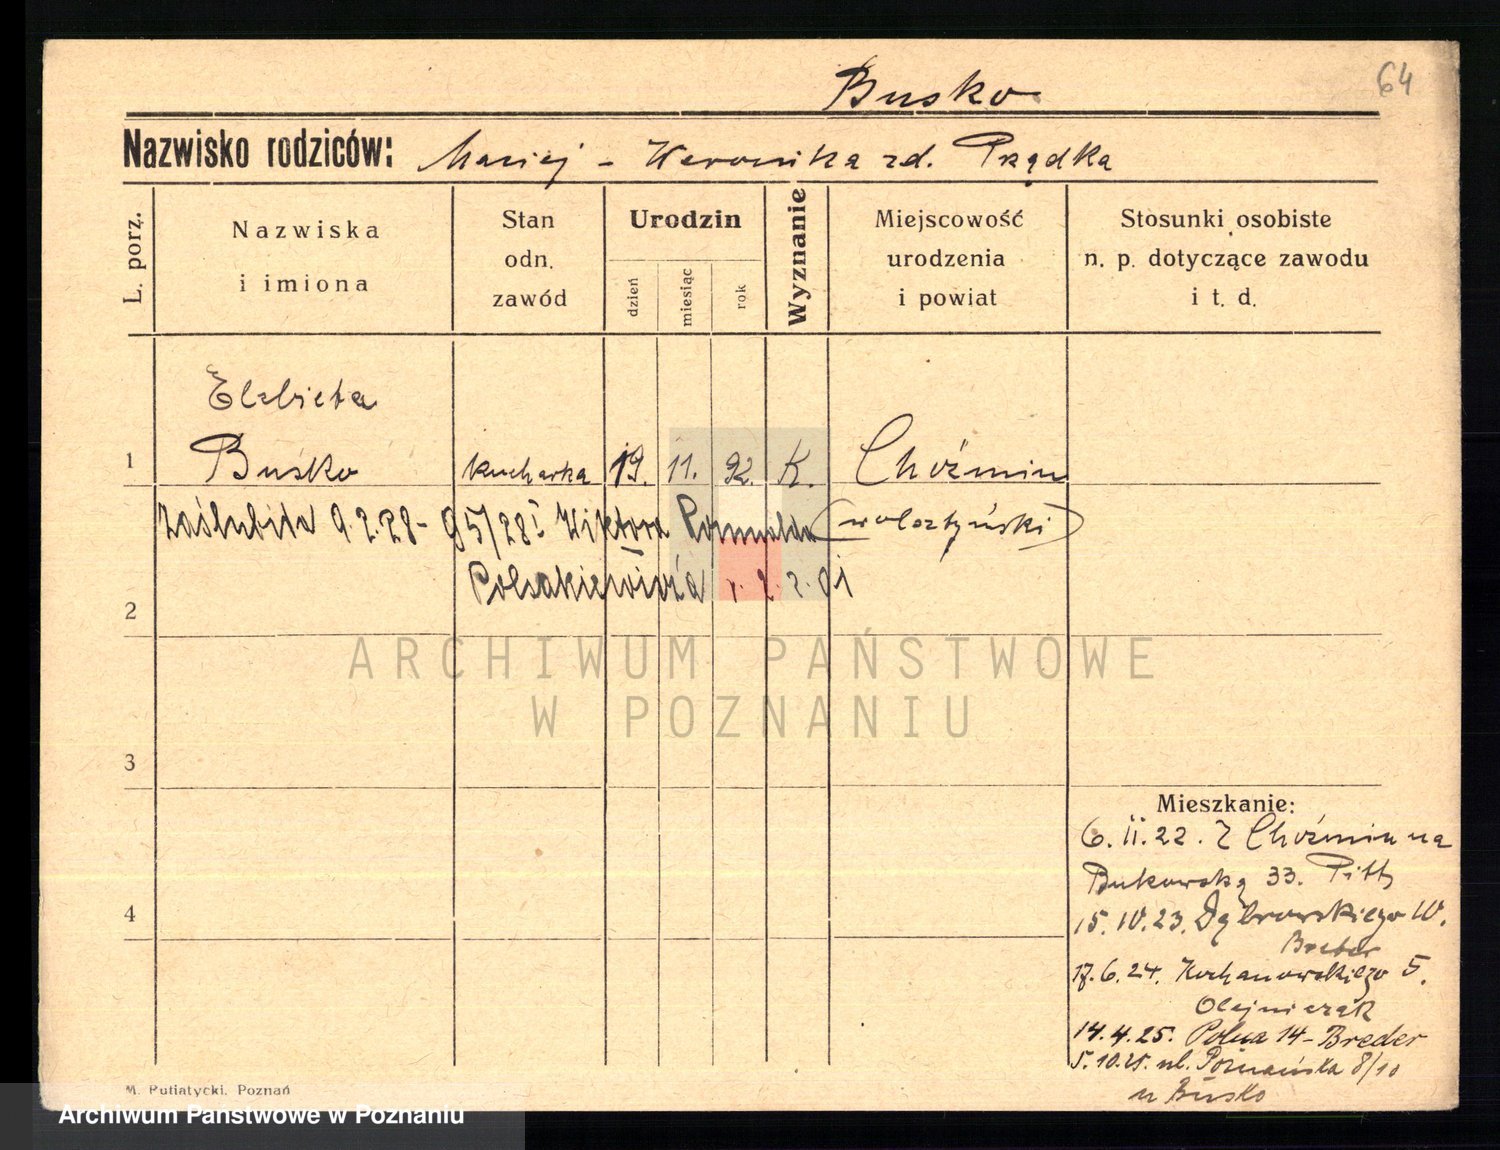 Busko
64
Nazwisko rodziców: Maciej - Weronika zd. Prządka
L. porz.
Nazwiska
i imiona
Stan
odn.
zawód
Urodzin
dzień
miesiąc
rok
Wyznanie
Miejscowość
urodzenia
i powiat
Stosunki osobiste
n. p. dotyczące zawodu
i t. d.
Elzbieta
1 Busko kucharka 19. 11. 92. K. Choźmin
zaślubiła 9.2.28 - 95/28 Wiktora Romualda (wolsztyński)
2
ARCHIWUM PAŃSTWOWE
W POZNANIU
3
Mieszkanie:
6. II. 22. Z Choźmin na
Bukowską 33.
4
15. IV. 23. Dąbrowskiego
Breder
17. 6. 24. Kochanowskiego 5.
Olejniczak
14. 4. 25. Polna 14 - Breder
5. 10. 25. ul. Poznańska 8/10
u Busko
M. Putiatycki, Poznań
Archiwum Państwowe w Poznaniu